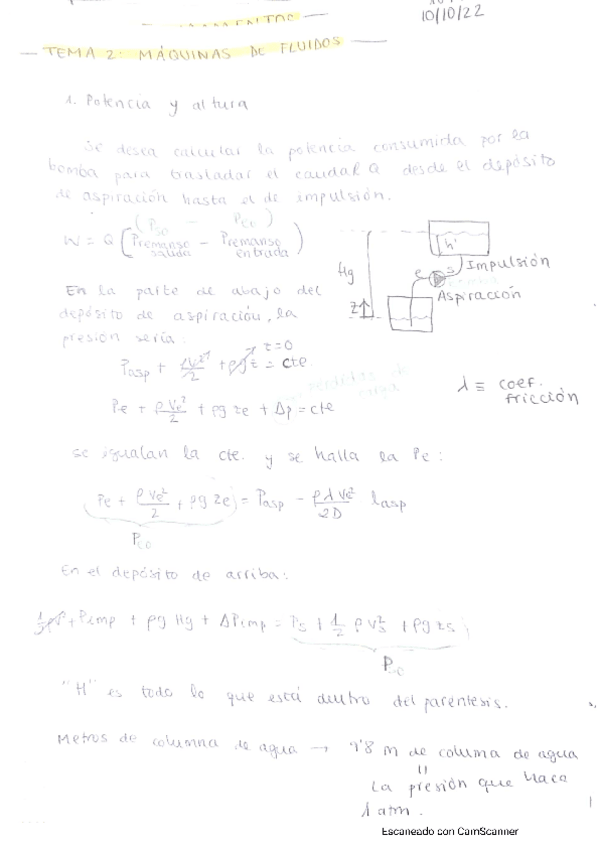 10/10/22
TEMA 2: MÁQUINAS DE FLUIDOS
1. Potencia y altura
Se desea calcular la potencia consumida por la
bomba para trasladar el caudal Q desde el depósito
de aspiración hasta el de impulsión.
W = Q (Premanso salida − Premanso entrada)
h'
Hg
e
s
Impulsión
Aspiración
z
En la parte de abajo del
depósito de aspiración, la
presión sería:
z=0
Pasp + ρv²/2 + ρgz = cte
λ ≡ coef.
fricción
Pe + ρve²/2 + ρg ze + Δp = cte
se igualan la cte. y se halla la Pe:
Pe + ρve²/2 + ρg ze = Pasp − ρλve²/2D lasp
En el depósito de arriba:
Pimp + ρg Hg + ΔPimp = Ps + 1/2 ρ vs² + ρg zs
"H" es todo lo que está dentro del paréntesis.
Metros de columna de agua → 9'8 m de columa de agua
||
La presión que hace
1 atm.
Escaneado con CamScanner